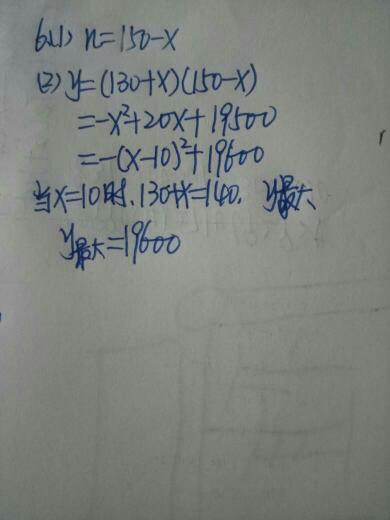 6.(1) n=150-x
(2) y=(130+x)(150-x)
=-x²+20x+19500
=-(x-10)²+19600
当x=10时,130+x=140, y最大
y最大=19600